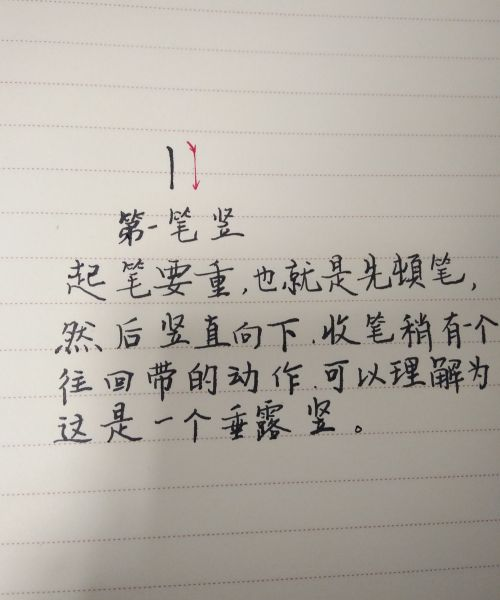 第一笔竖
起笔要重,也就是先顿笔,
然后竖直向下.收笔稍有一个
往回带的动作.可以理解为
这是一个垂露竖。